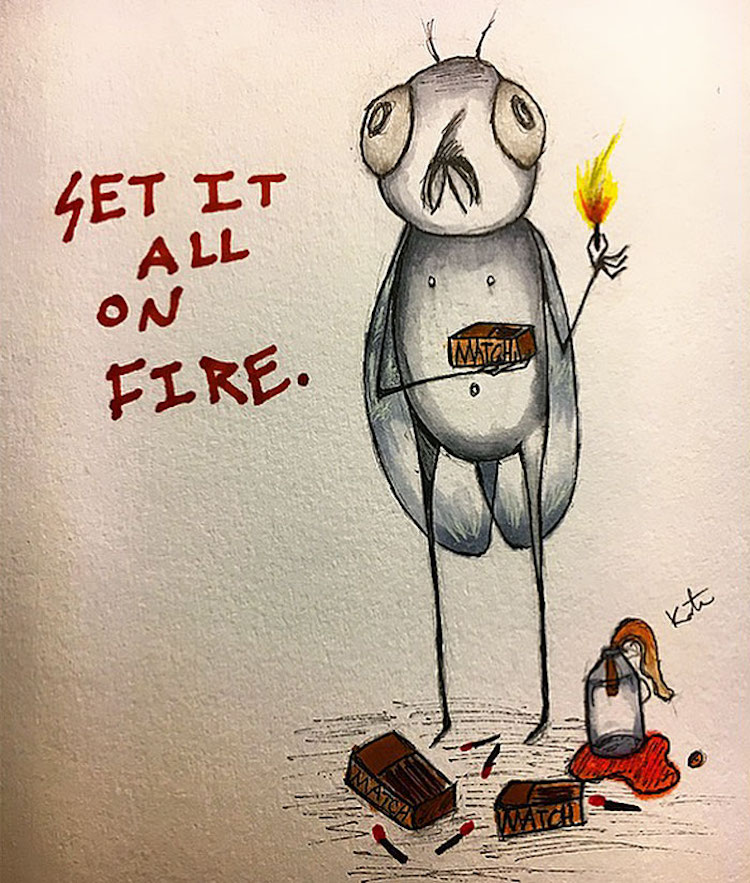 SET IT
ALL
ON
FIRE.
MATCH
MATCH
MATCH